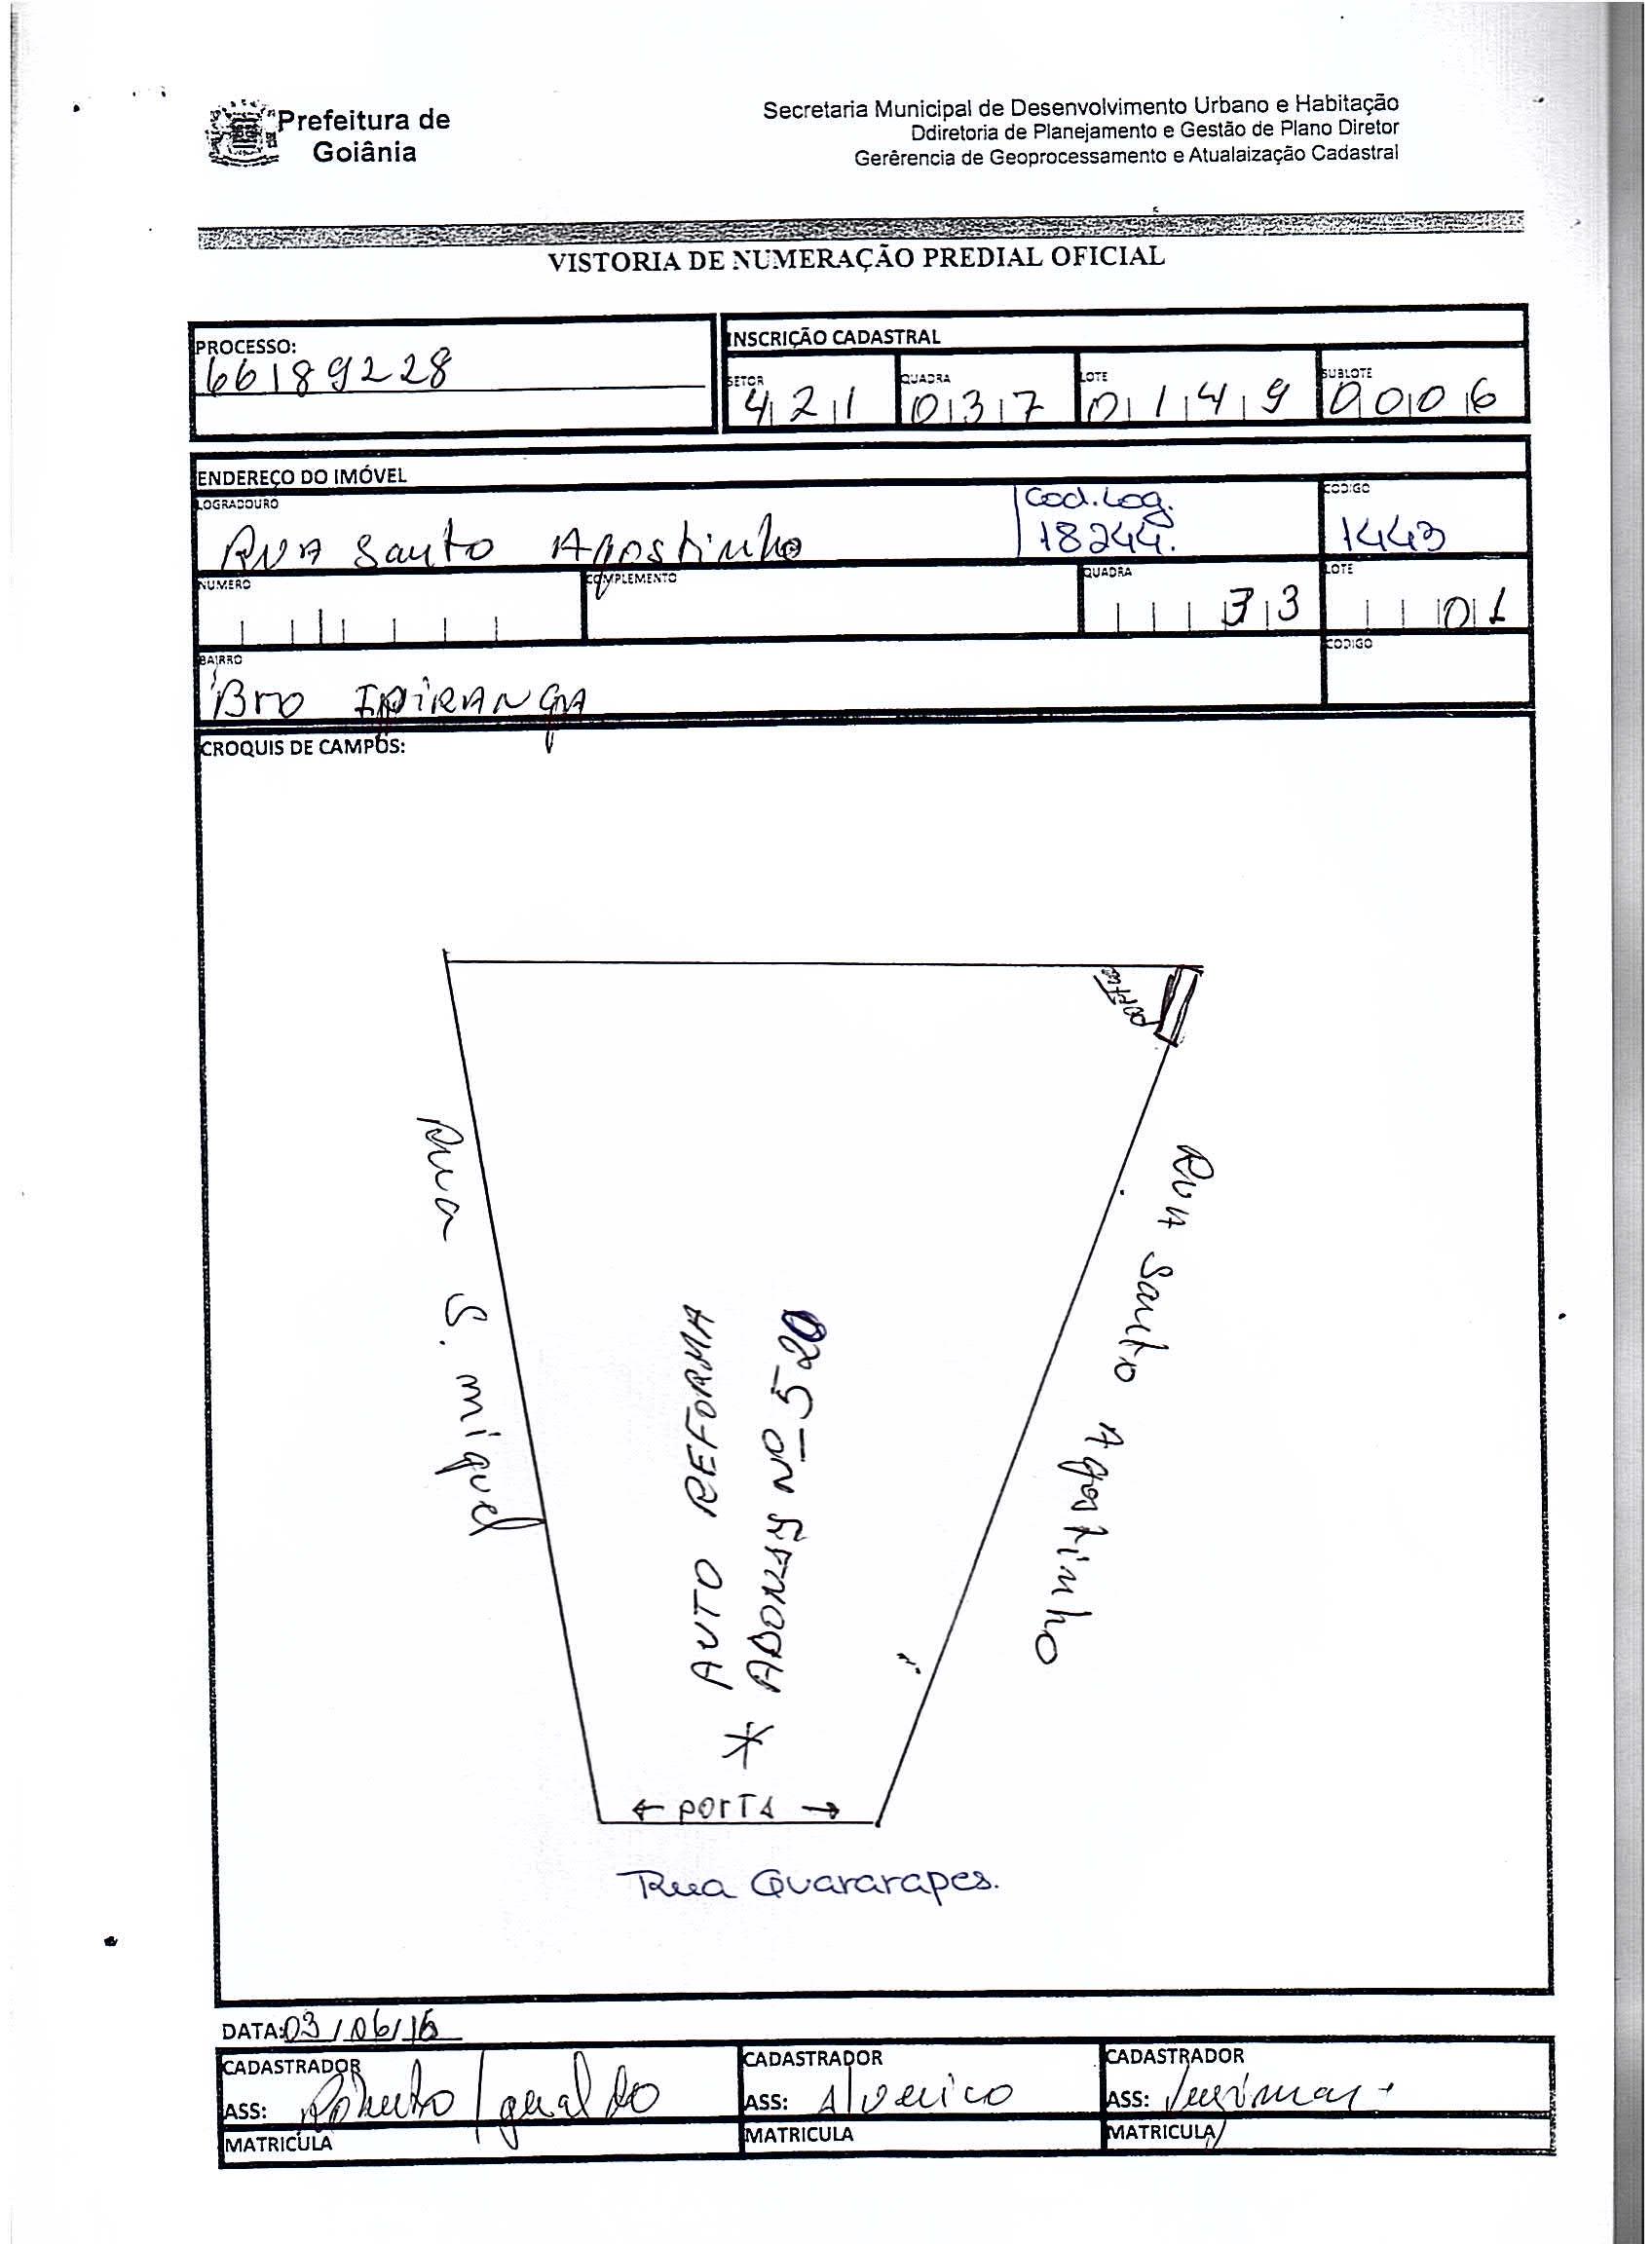 Prefeitura de
Goiânia
Secretaria Municipal de Desenvolvimento Urbano e Habitação
Ddiretoria de Planejamento e Gestão de Plano Diretor
Gerêrencia de Geoprocessamento e Atualaização Cadastral
VISTORIA DE NUMERAÇÃO PREDIAL OFICIAL
PROCESSO:
66189228
INSCRIÇÃO CADASTRAL
SETOR QUADRA LOTE SUBLOTE
421 037 0149 0006
ENDEREÇO DO IMÓVEL
LOGRADOURO Cod.Log. CODIGO
RUA Santo Agostinho 18244. 1443
NUMERO COMPLEMENTO QUADRA LOTE
33 01
BAIRRO CODIGO
Bro IPIRANGA
CROQUIS DE CAMPOS:
Rua S. miguel
AUTO REFORMA
* ADONAY Nº 520
Rua Santo Agostinho
← PORTA →
Rua Guararapes.
DATA: 03/06/16
CADASTRADOR CADASTRADOR CADASTRADOR
ASS: Roberto / geraldo ASS: Alverico ASS:
MATRICULA MATRICULA MATRICULA